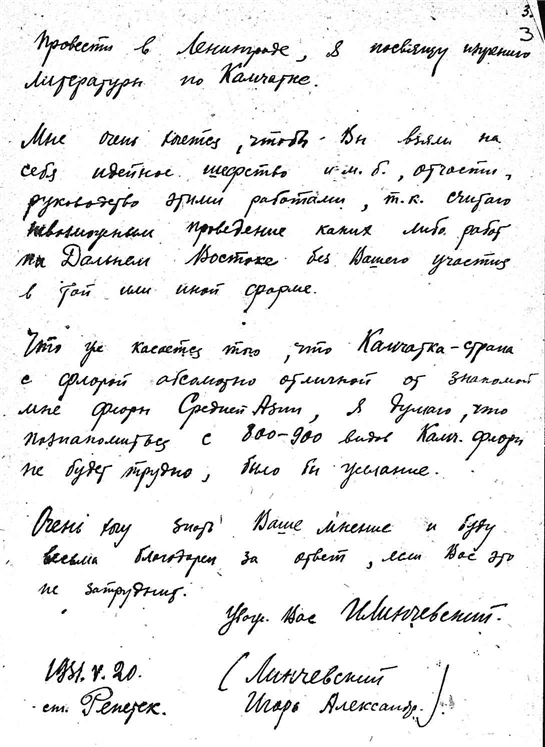 3.
3
провести в Ленинграде, я посвящу изучению
литературы по Камчатке.
Мне очень хочется, чтобы Вы взяли на
себя идейное шефство и м.б., отчасти,
руководство этими работами, т.к. считаю
невозможным проведение каких либо работ
на Дальнем Востоке без Вашего участия
в той или иной форме.
Что же касается того, что Камчатка-страна
с флорой абсолютно отличной от знакомой
мне флоры Средней Азии, я думаю, что
познакомиться с 800-900 видов Камч. флоры
не будет трудно, было бы желание.
Очень хочу знать Ваше мнение и буду
весьма благодарен за ответ, если Вас это
не затруднит.
Уваж. Вас ИЛинчевский.
1931.V.20. (Линчевский
ст. Репетек. Игорь Александр.)